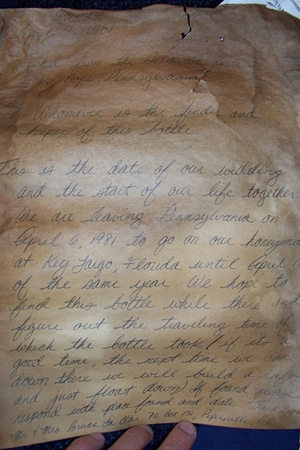 from the
Hope, Pennsylvania
To whomever is the finder and
keeper of this bottle
This is the date of our wedding
and the start of our life together
We are leaving Pennsylvania on
April 6, 1981 to go on our honeymoo
at Key Largo, Florida until April
of the same year. We hope to
find this bottle while there and
figure out the traveling time of
which the bottle took. If its
good time, the next time we come
down there we will build a
and just float down. If found please
respond with place found and date
Mr & Mrs Bruce